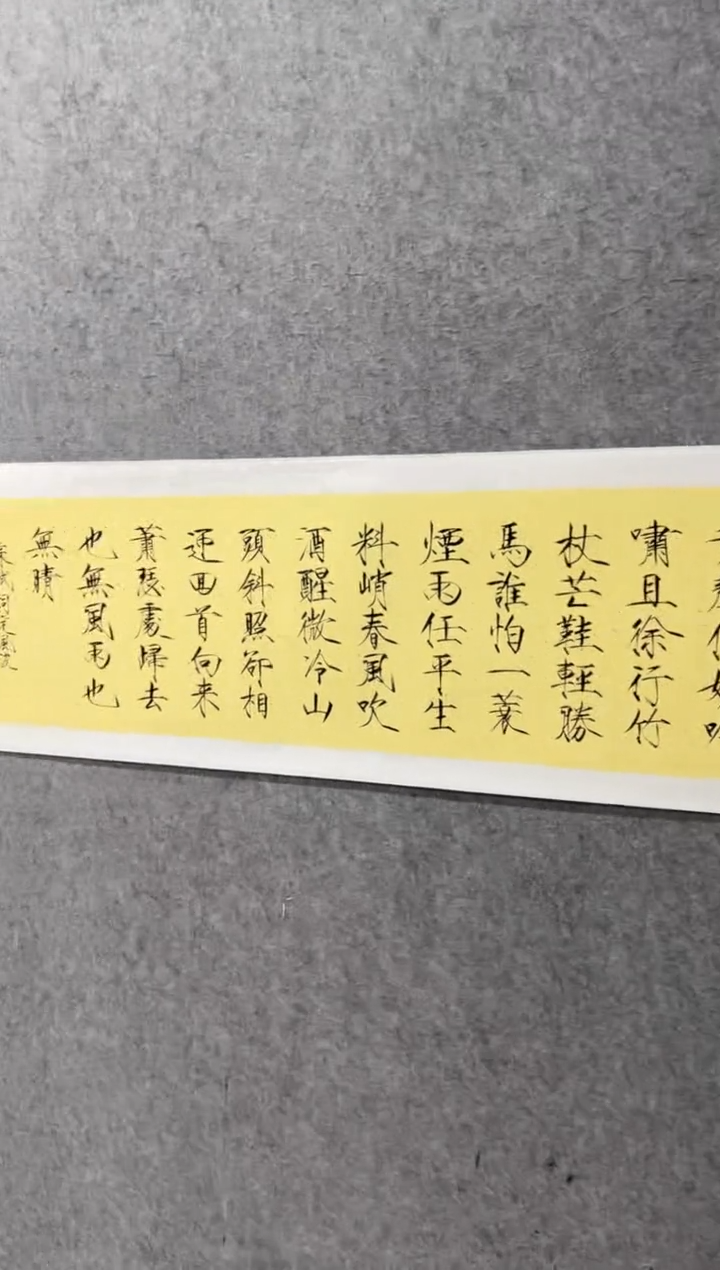 何妨吟
嘯且徐行竹
杖芒鞋輕勝
馬誰怕一蓑
煙雨任平生
料峭春風吹
酒醒微冷山
頭斜照卻相
迎回首向来
蕭瑟處歸去
也無風雨也
無晴
軾詞定風波